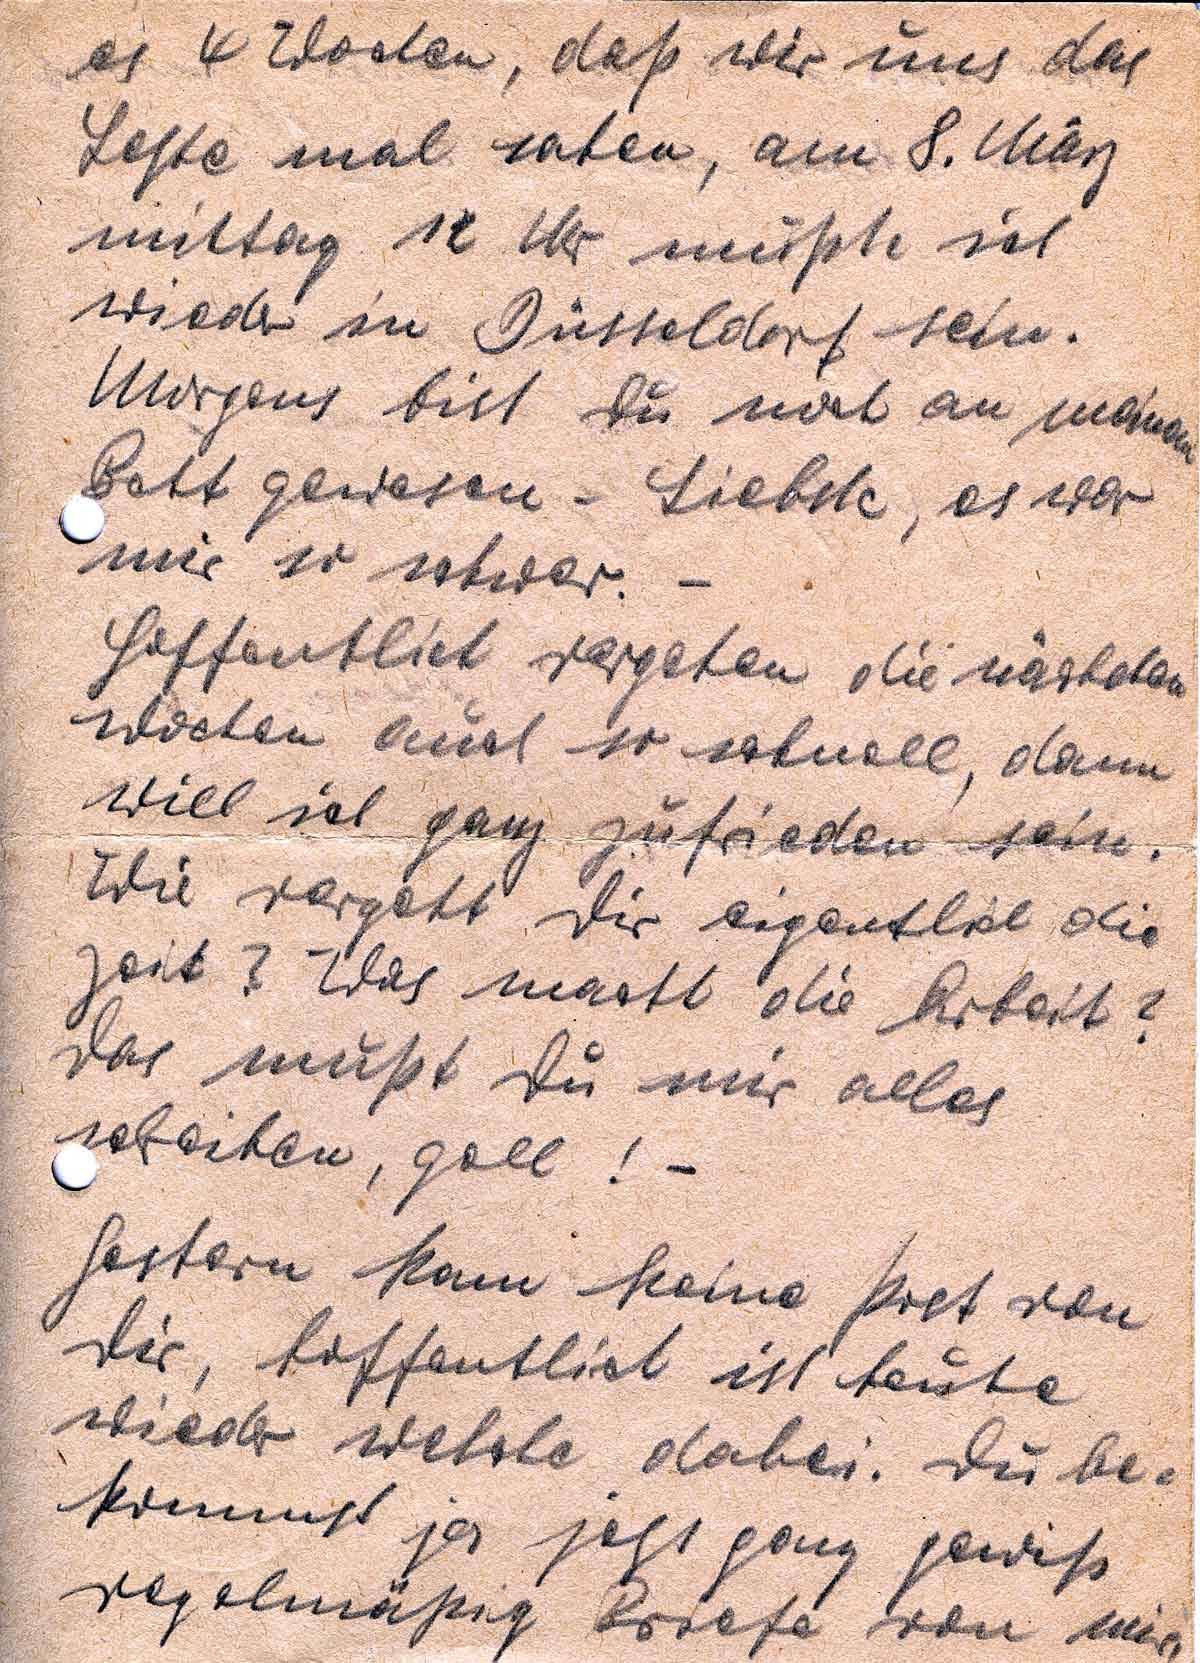 es 4 Wochen, daß wir uns das
Letzte mal sahen, am 8. März
mittag 12 Uhr mußte ich
wieder in Düsseldorf sein.
Morgens bist Du noch an meinem
Bett gewesen - Liebste, es war
mir so schwer. -
Hoffentlich vergehen die nächsten
Wochen auch so schnell, dann
will ich ganz zufrieden sein.
Wie vergeht Dir eigentlich die
Zeit? Was macht die Arbeit?
Das mußt Du mir alles
schreiben, gell! -
Gestern kam keine Post von
Dir, hoffentlich ist heute
wieder welche dabei. Du be-
kommst ja jetzt ganz gewiß
regelmäßig Briefe von mir